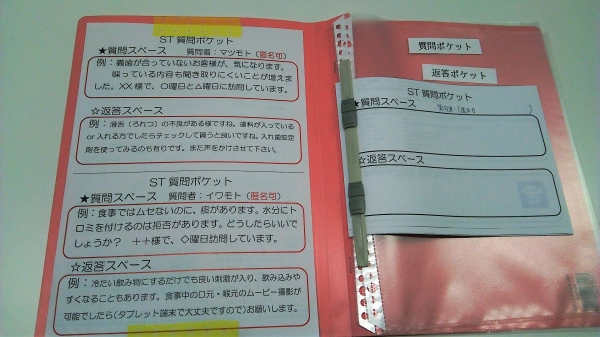 ST 質問ポケット
★質問スペース 質問者:マツモト(匿名可)
例:義歯が合っていないお客様が、気になります。
喋っている内容も聞き取りにくいことが増えま
した。××様で、〇曜日と△曜日に訪問しています。
☆返答スペース
例:滑舌(ろれつ)の不良がある様ですね。歯科が入っている
or入れる方でしたらチェックして貰うと良いですね。入れ歯安定
剤を使ってみるのも有りです。また声をかけさせて下さい。
ST 質問ポケット
★質問スペース 質問者:イワモト(匿名可)
例:食事ではムセないのに、痰があります。水分にト
ロミを付けるのは拒否があります。どうしたらいいで
しょうか? ++様で、◇曜日訪問しています。
☆返答スペース
例:冷たい飲み物にするだけでも良い刺激が入り、飲み込みや
すくなることもあります。食事中の口元・喉元のムービー撮影が
可能でしたら(タブレット端末で大丈夫ですので)お願いします。
質問ポケット
返答ポケット
ST 質問ポケット
★質問スペース
☆返答スペース